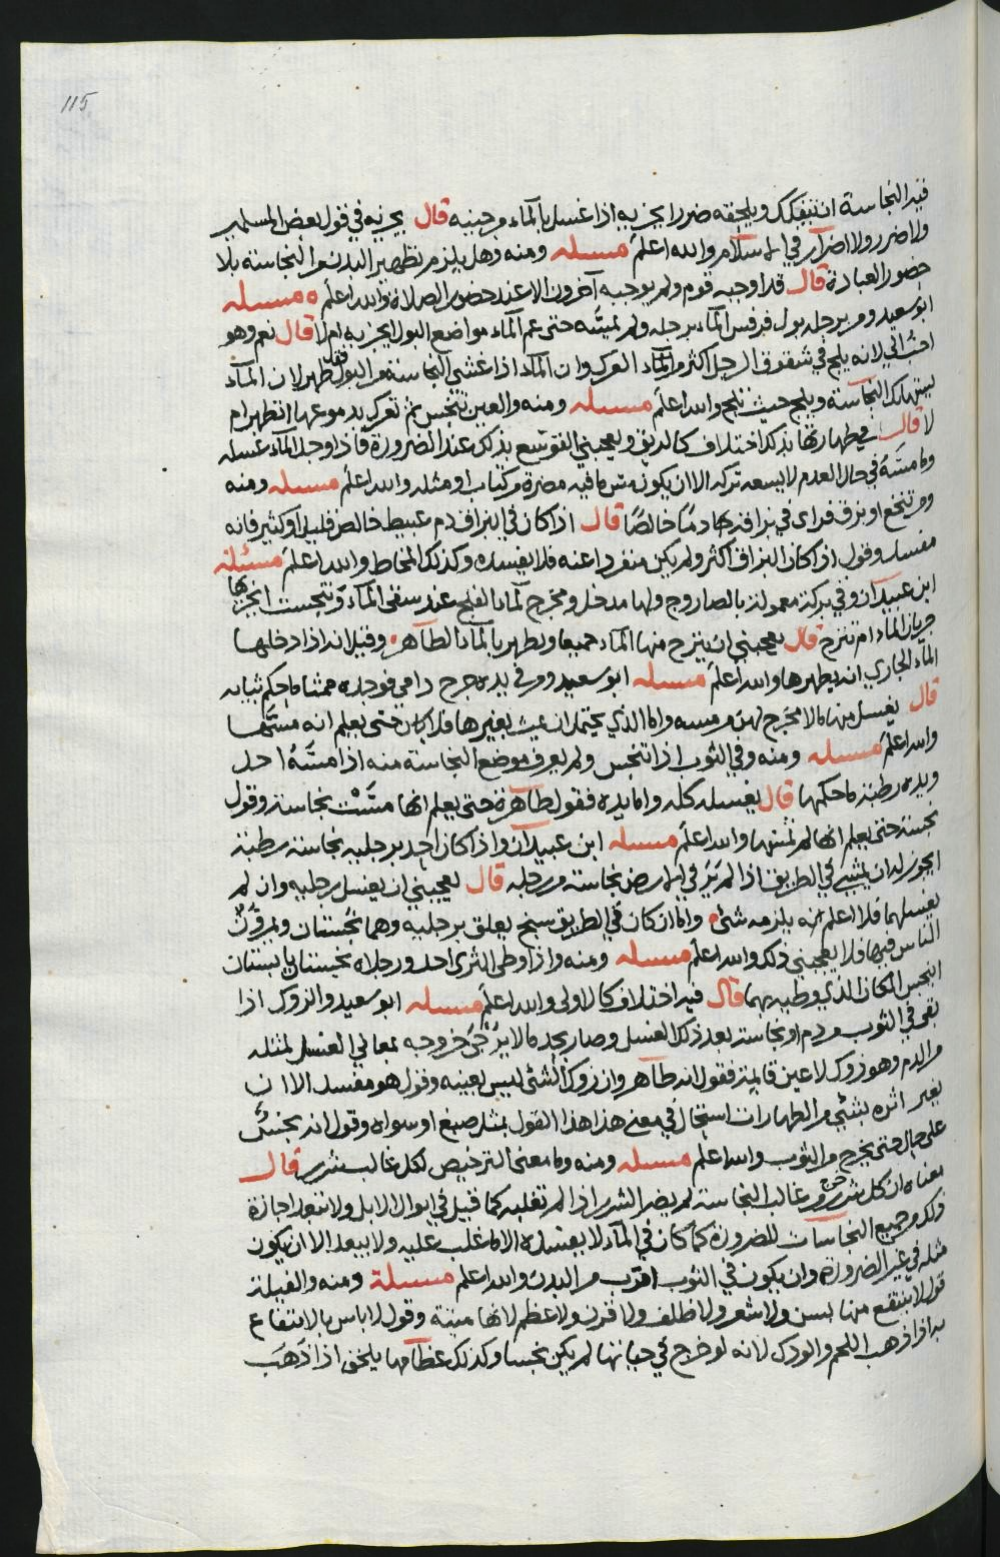 115
فيه النجاسة ان ينفكك ويلحقه ضررا يجزيه اذا غسل بالماء وجنبه قال يجزيه في قول بعض المسلمين
ولا ضرر ولا اضرار في الاسلام والله اعلم مسئلة ومنه وهل يلزم تطهير البدن من النجاسة بلا
حضور العبادة قال قد اوجبه قوم ولم يوجبه آخرون الا عند حضور الصلاة والله اعلم ه مسئلة
ابو سعيد ومن برجله بول فرفس الماء برجله ولم يمسه حتى عم الماء مواضع البول ايجزيه ام لا قال نعم وهو
احب الي لانه يلج في شقوق الرجل اكثر من الماء العرك وان الماء اذا غشي النجاسة من البول فقد طهر لان الماء
يستهلك النجاسة ويلج حيث تلج والله اعلم مسئلة ومنه والعين تنجس ثم تعرك بدموعها اتطهر ام
لا قال في طهارتها بذلك اختلاف كالريق ويعجبني التوسع بذلك عند الضرورة فاذا وجد الماء غسله
وما مسه في حال العدم لا يسعه تركه الا ان يكون مس ما فيه مضرة من كتاب او مثله والله اعلم مسئلة ومنه
ومن تنخع او بزق فراى في بزاقه هادما خالصا قال اذا كان في البزاق دم عبيط خالص قليل او كثير فانه
مفسد وقول اذا كان البزاق اكثر ولم يكن منفردا عنه فلا يفسده وكذلك المخاط والله اعلم مسئلة
ابن عبيدان وفي بركة معمولة بالصاروج ولها مدخل ومخرج لماء الفلج عند سقي الماء وتنجست ايجزيها
جريان الماء ام تنزح قال يعجبني ان ينزح منها الماء جميعا وتطهر بالماء الطاهر ه وقيل انه اذا دخلها
الماء الجاري انه يطهرها والله اعلم مسئلة ابو سعيد ومن في يده جرح دامي فوجده ممثا ما حكم ثيابه
قال يغسل منها ما لا مخرج لهن من مسه واما الذي يحتمل انه يمث بغيرها فلا باس حتى يعلم انه مستها
والله اعلم مسئلة ومنه وفي الثوب اذا تنجس ولم يعرف موضع النجاسة منه اذا مسه احد
ويده رطبة ما حكمها قال يغسله كله واما يده فقول طاهرة حتى يعلم انها مست نجاسة وقول
نجسة حتى يعلم انها لم تمسها والله اعلم مسئلة ابن عبيدان واذا كان احد برجليه نجاسة رطبة
ايجوز له ان يمشي في الطريق اذا لم تر في الارض نجاسة من رجليه قال يعجبني ان يغسل رجليه وان لم
يغسلهما فلا اعلم انه يلزمه شيء واما ان كان في الطريق سبخ يعلق برجليه وهما نجستان ويمر قرب
الناس فيها فلا يعجبني ذلك والله اعلم مسئلة ومنه واذا وطى الثرى احد ورجلاه نجستان يابستان
اينجس المكان الذي وطيه بهما قال فيه اختلاف كالاولى والله اعلم مسئلة ابو سعيد والزوك اذا
بقي في الثوب من دم او نجاسة بعد ذلك الغسل وصار بحد ما لا يرتجى خروجه بمعالي الغسل لمثله
من الدم وهو زوك لا عين قايمة فقول انه طاهر وان زوك الشئ ليس بعينه وقول هو مفسد الا ان
يغير اثره بشئ من الطهارات استحال في معنى هذا هذا القول بمثل صبغ او سواه وقول انه نجس
على حال حتى يخرج من الثوب والله اعلم مسئلة ومنه وما معنى الترخيص لكل غالب شرر قال
معناه ان كل شرر خرج من غالب النجاسة لم يضر الشرر اذا لم تغلبه كما قيل في ابوال الابل ولا تتعد اجازة
ذلك من جميع النجاسات للضرورة كما كان في الماء لا يفسده الا ما غلب عليه ولا يبعد الا ان يكون
مثله في غير الضرورة وان يكون في الثوب اقرب من البدن والله اعلم مسئلة ومنه والفيلة
قول لا ينتفع منها بسن ولا شعر ولا ظلف ولا قرن ولا عظم لانها ميتة وقول لا باس بالانتفاع
به اذا ذهب اللحم والودك لانه لو خرج في حياتها لم يكن نجسا وكذلك عظامها يلحق اذا ذهب